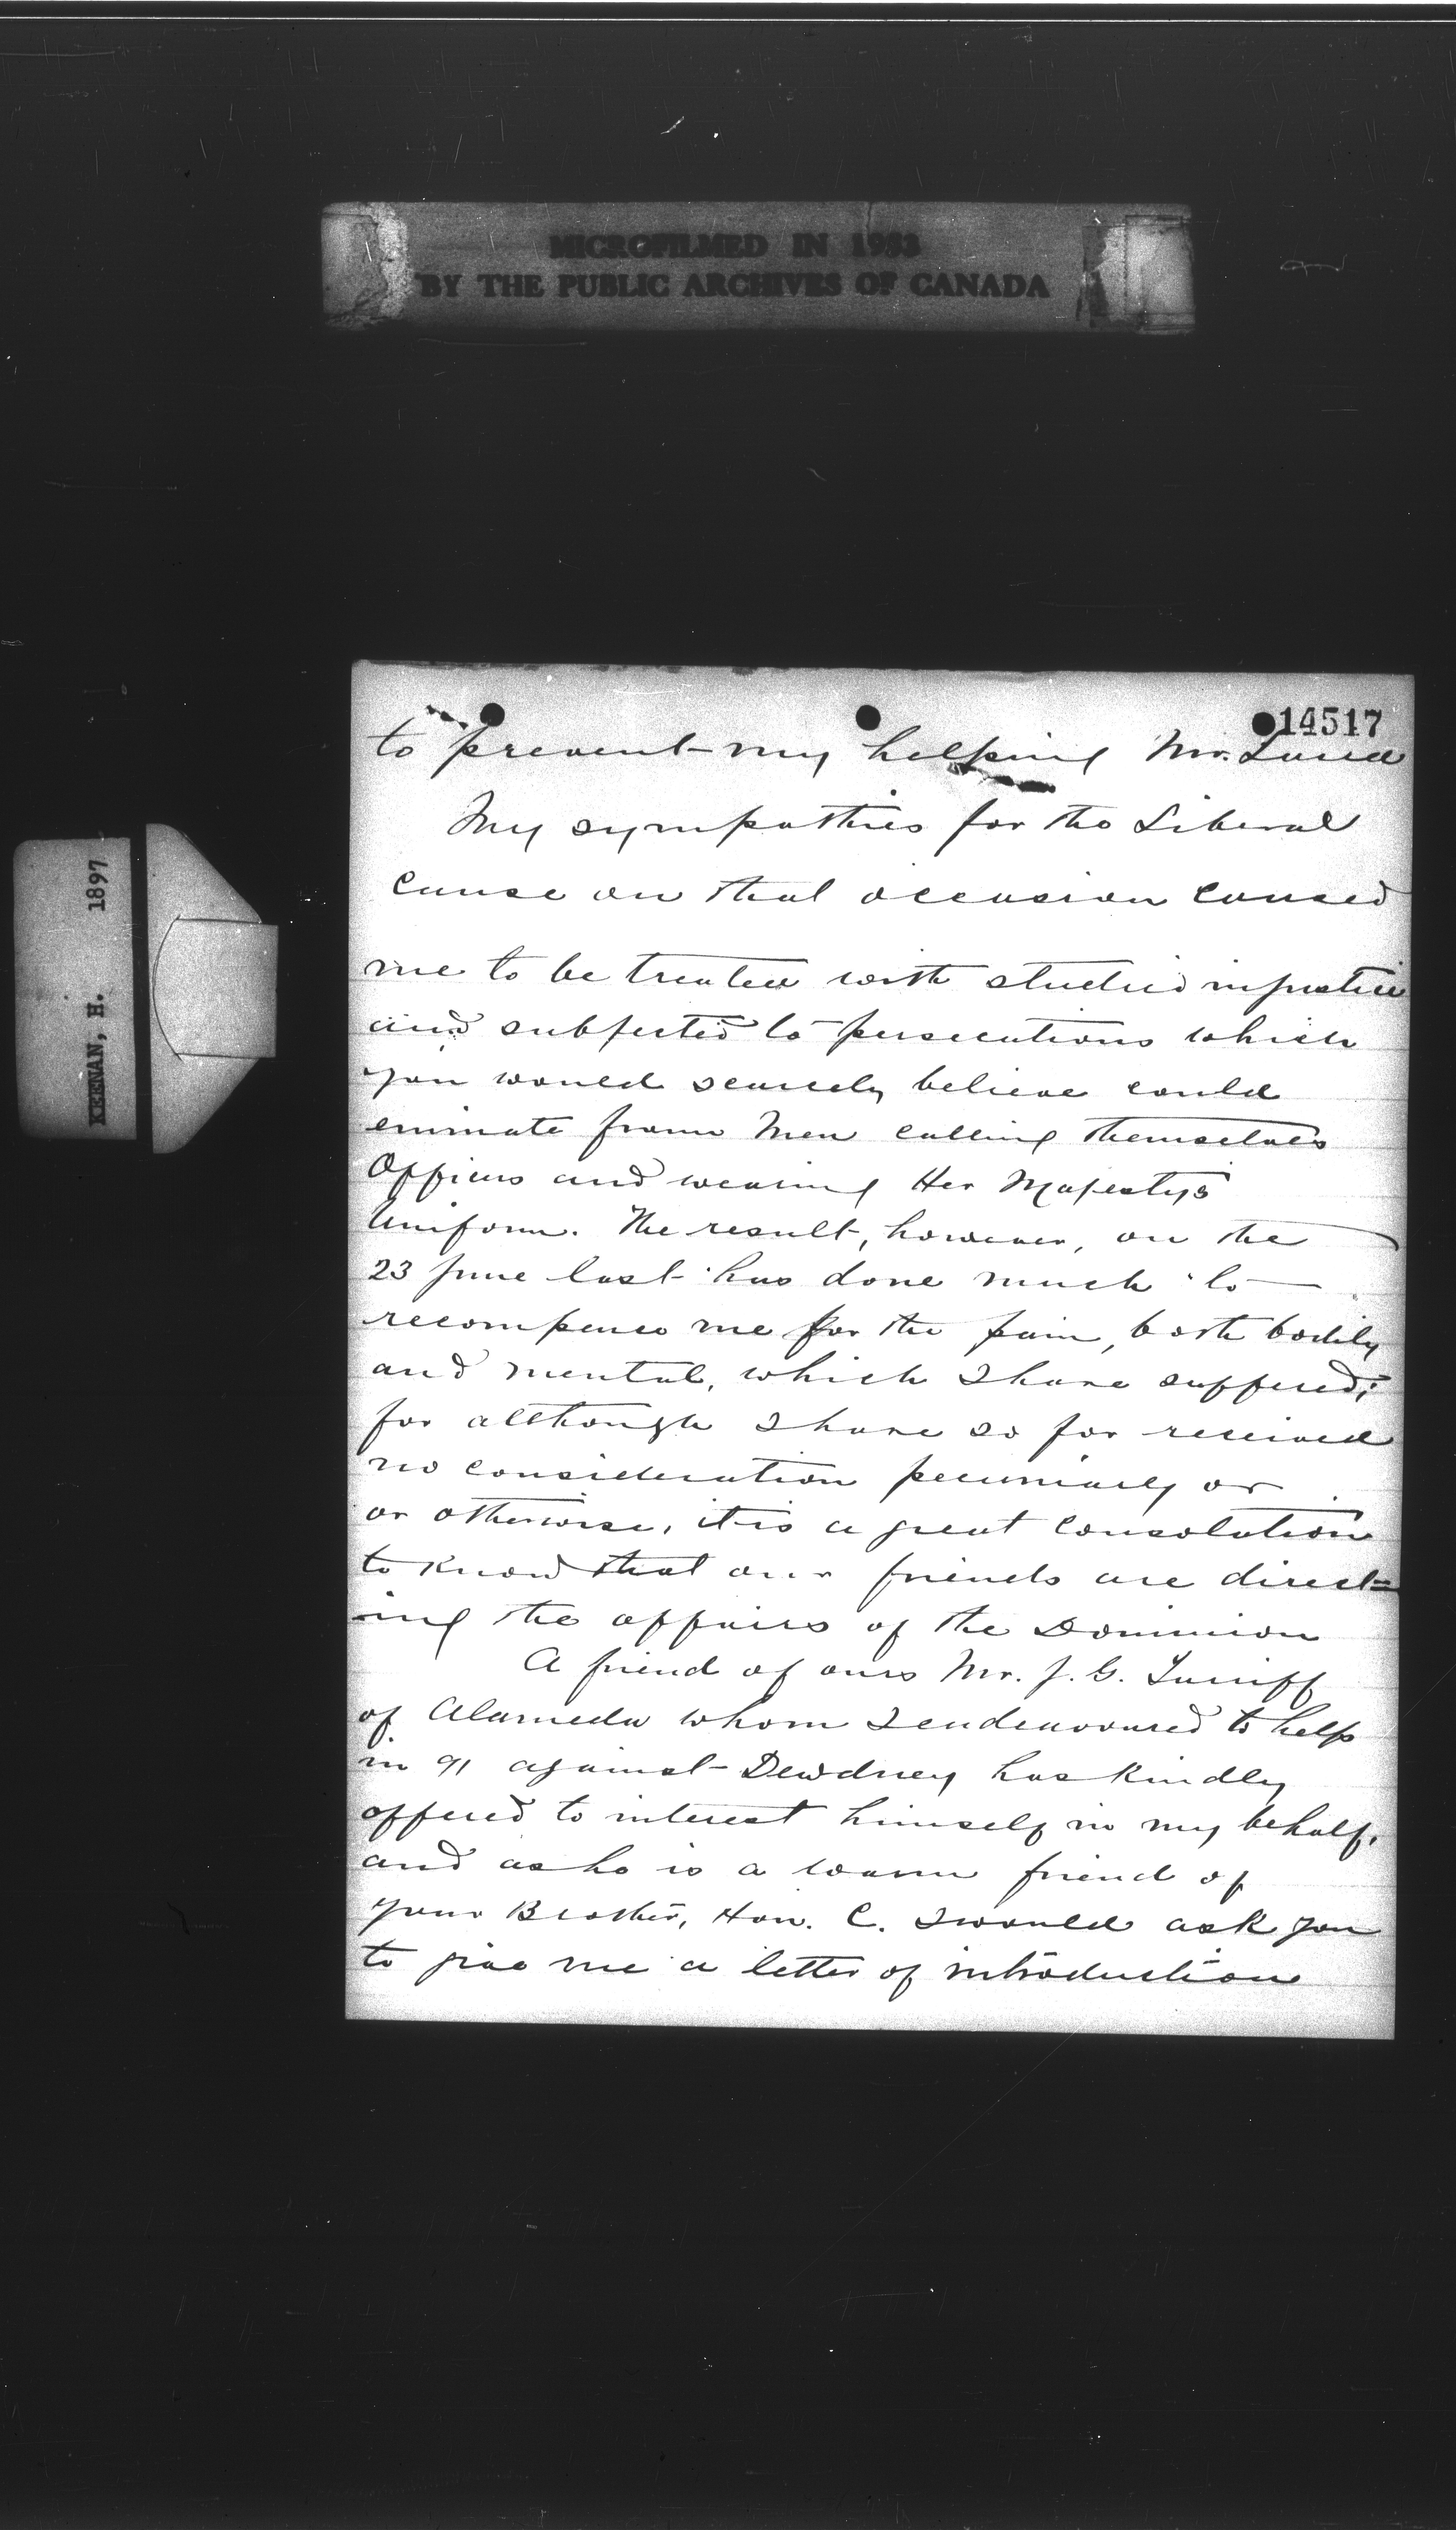 MICROFILMED IN 1953
BY THE PUBLIC ARCHIVES OF CANADA
KEENAN, H. 1897
14517
to prevent my helping Mr.
My sympathies for the Liberal
cause on that occasion caused
me to be treated with studied injustice
and subjected to persecutions which
you would scarcely believe could
eminate from Men calling themselves
Officers and wearing Her Majesty's
Uniform. The result, however, on the
23 June last has done much to
recompence me for the pain, both bodily
and mental, which I have suffered;
for although I have so far received
no consideration pecuniarly or
or otherwise, it is a great consolation
to know that our friends are direct=
ing the affairs of the Dominion
A friend of ours Mr. J. G. Turriff
of Alameda whom I endeavoured to help
in 91 against Dewdney has kindly
offered to interest himself in my behalf,
and as he is a warm friend of
your Brother, Hon. C. I would ask you
to give me a letter of introduction